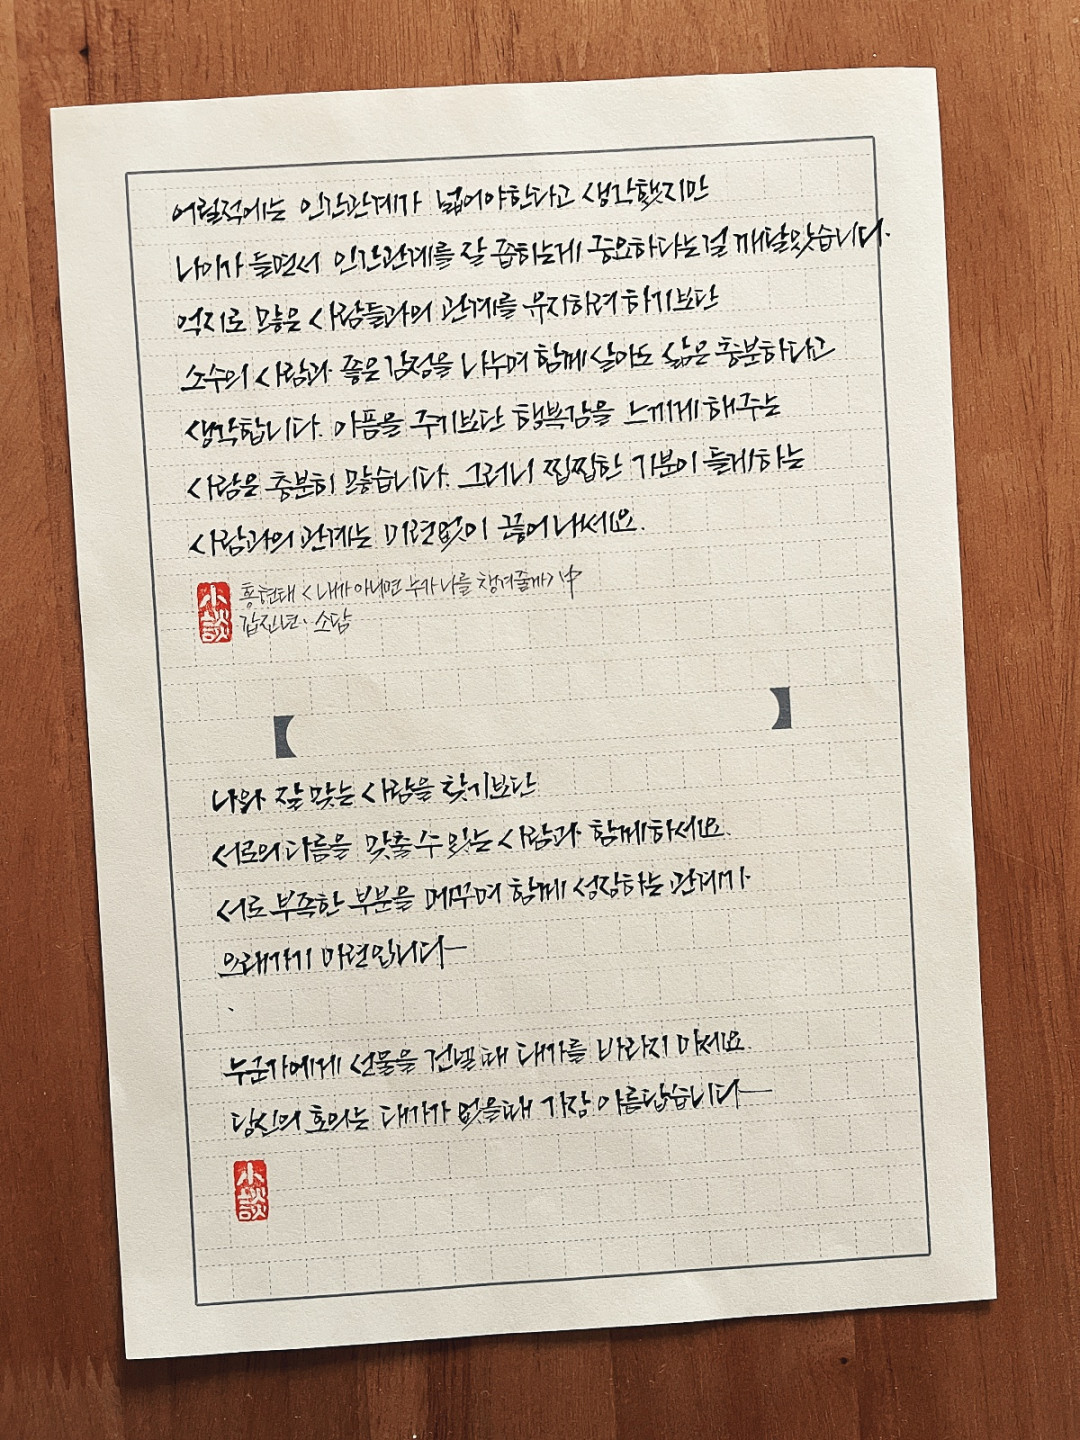 어릴적에는 인간관계가 넓어야한다고 생각했지만
나이가 들면서 인간관계를 잘 좁히는게 중요하다는걸 깨달았습니다.
억지로 많은 사람들과의 관계를 유지하려 하기보단
소수의 사람과 좋은 감정을 나누며 함께 살아도 삶은 충분하다고
생각합니다. 아픔을 주기보단 행복감을 느끼게 해주는
사람은 충분히 많습니다. 그러니 찝찝한 기분이 들게하는
사람과의 관계는 미련없이 끊어 내세요.
홍현태 <내가 아니면 누가 나를 챙겨줄까> 中
갑진년. 소담
小談
나와 잘 맞는 사람을 찾기보단
서로의 다름을 맞출 수 있는 사람과 함께하세요.
서로 부족한 부분을 메꾸며 함께 성장하는 관계가
오래가기 마련입니다—
누군가에게 선물을 건넬 때 대가를 바라지 마세요.
당신의 호의는 대가가 없을때 가장 아름답습니다—
小談